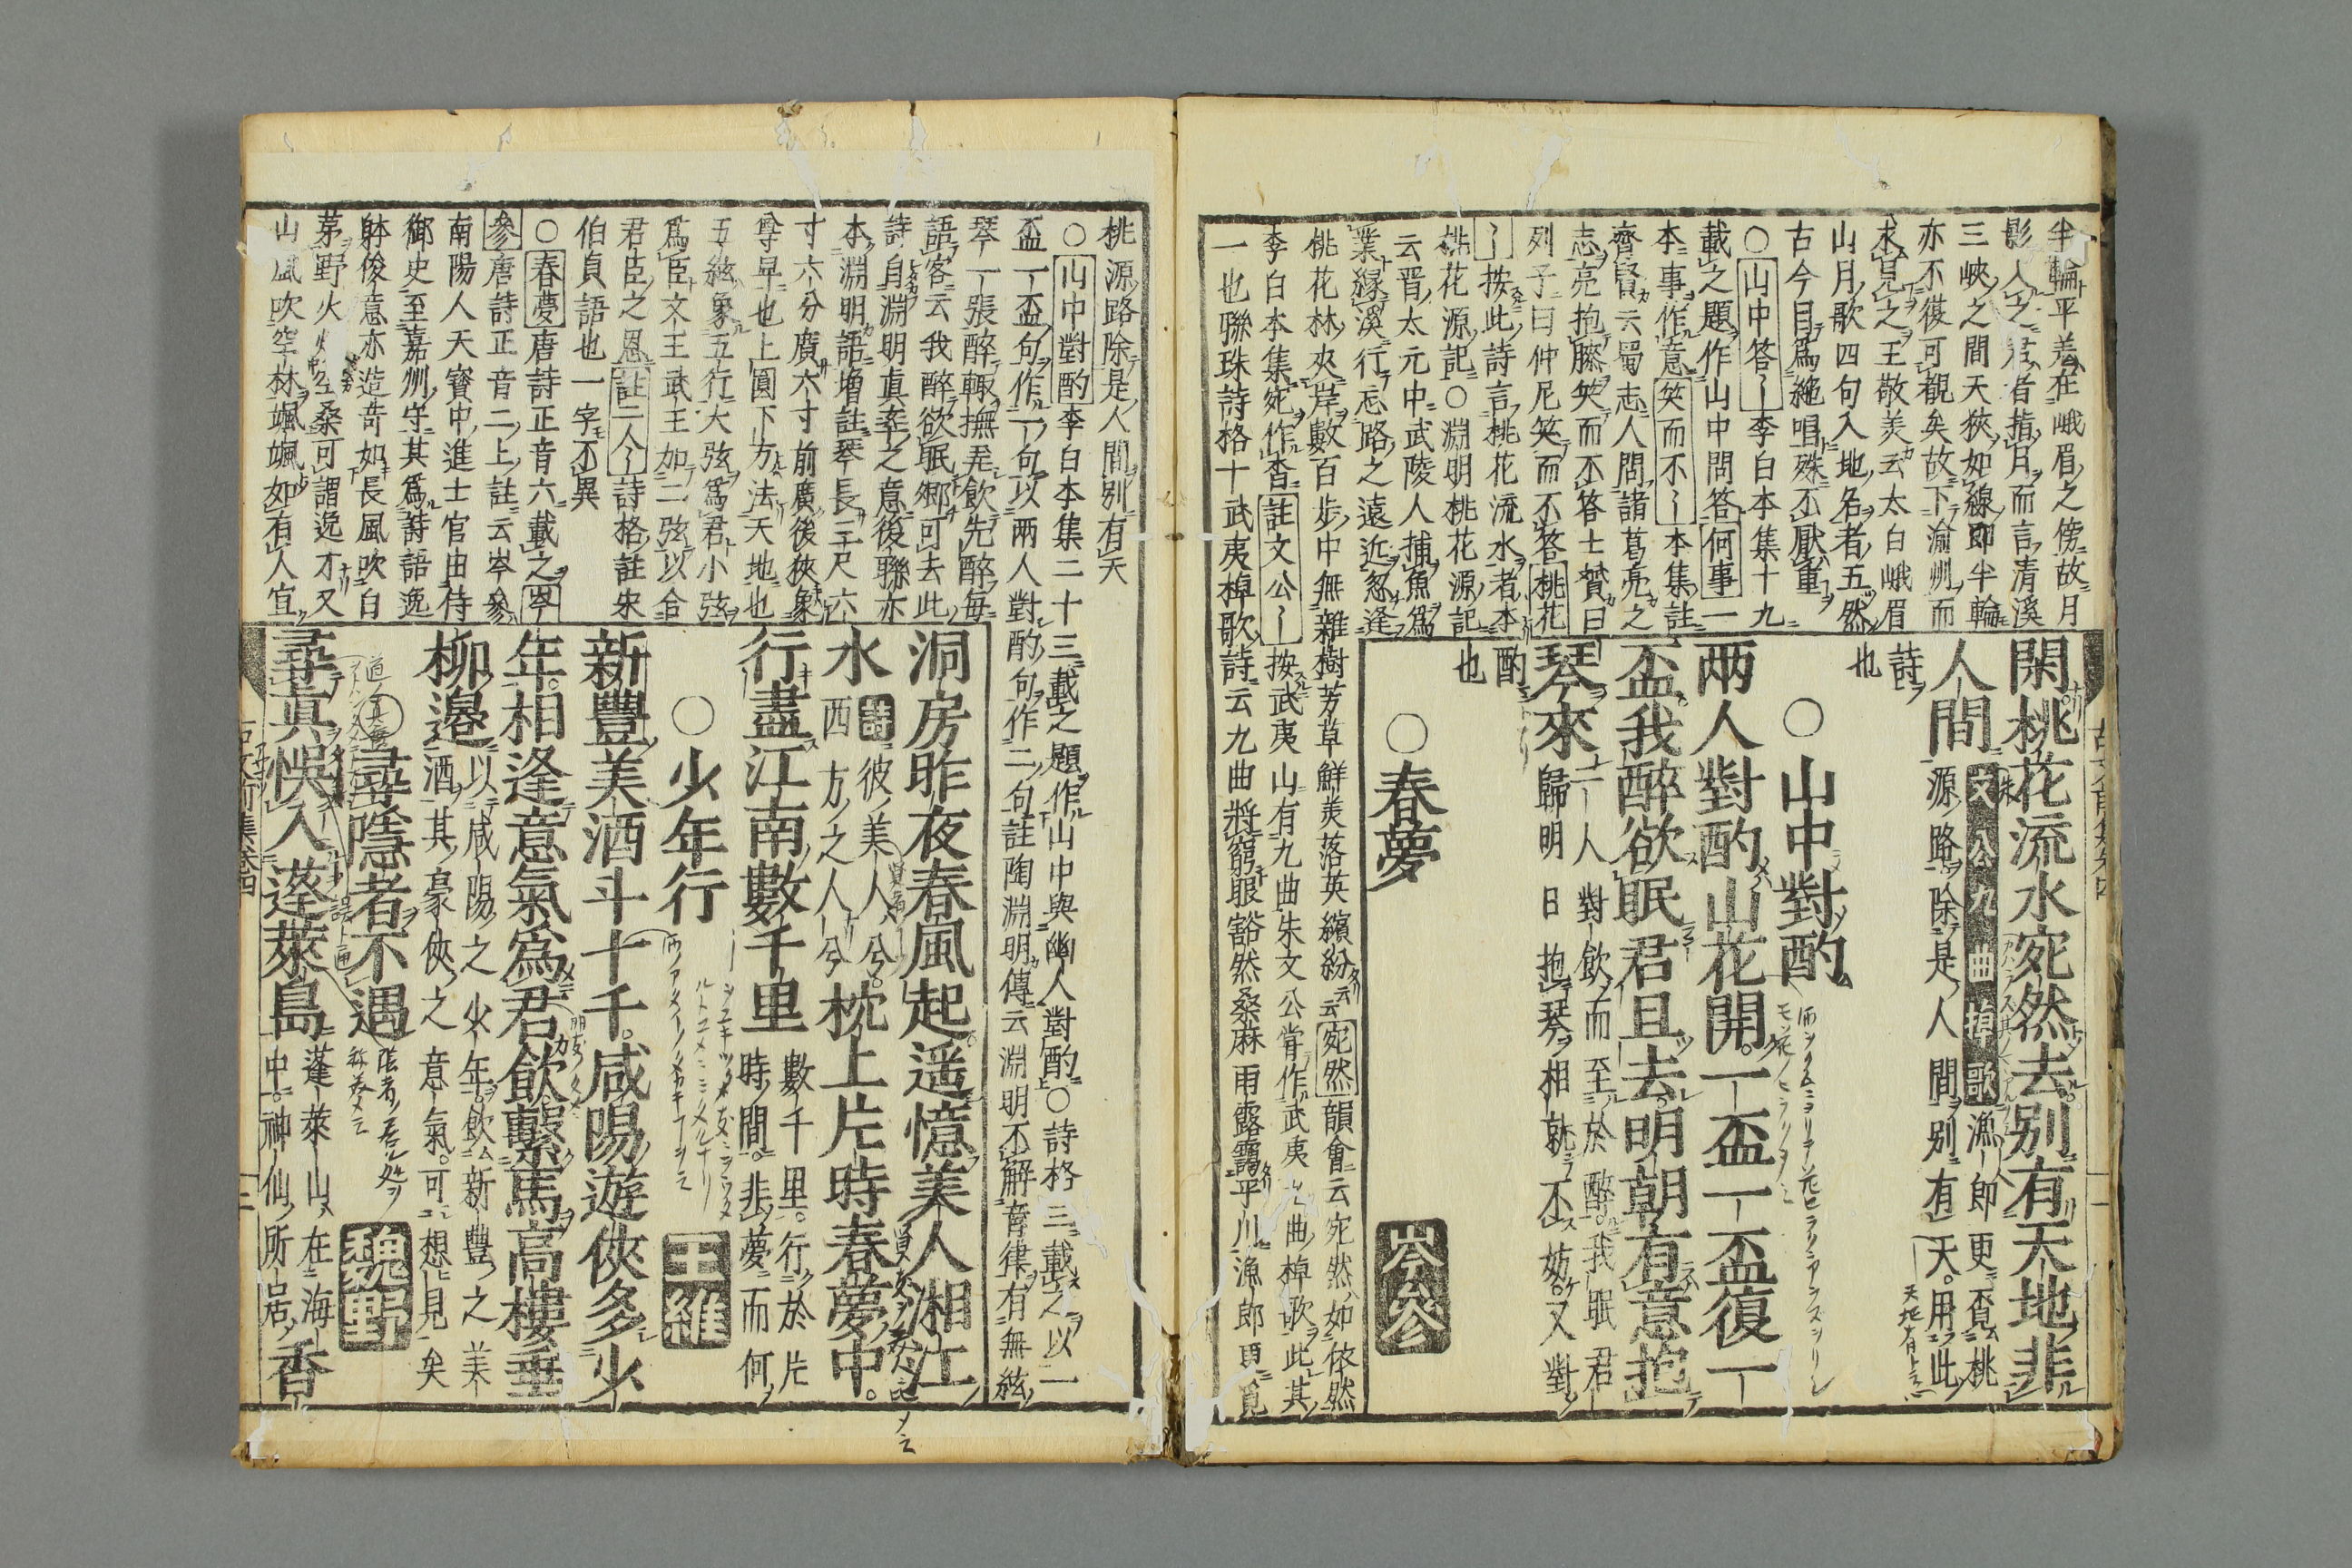 半輪平羗在峨眉之傍故月
影入之君者指月而言清溪
三峽之間天狹如線即半輪
亦不復可観矣故下渝州而
求見之王敬美云太白峨眉
山月歌四句入地名者五然
古今目爲絶唱殊不厭重
○山中答〻李白本集十九
載之題作山中問答何事一
本事作意笑而不〻本集註
齊賢云蜀志人問諸葛亮之
志亮抱膝笑而不答士贇曰
列子曰仲尼笑而不答桃花
〻按此詩言桃花流水者本
桃花源記○淵明桃花源記
云晋太元中武陵人捕魚爲
業縁溪行忘路之遠近忽逢
桃花林夾岸數百歩中無雜樹芳草鮮美落英繽紛云宛然韻會云宛然如依然
李白本集宛作杳註文公〻按武夷山有九曲朱文公甞作武夷九曲棹歌此其
一也聯珠詩格十武夷棹歌詩云九曲將窮眼豁然桑麻雨露靄平川漁郎更覓
閑桃花流水宛然去別有天地非
人間
朱文公九曲棹歌漁郎更覓桃
源路除是人間別有天用此
詩
也
○山中對酌
兩人對酌山花開一盃一盃復一
盃我醉欲眠君且去明朝有意抱
琴來
二人對飲而至於醉我眠君
歸明日抱琴相就不妨又對
酌
也
○春夢
岑參
桃源路除是人間別有天
○山中對酌李白本集二十三載之題作山中與幽人對酌○詩格三載之以二
盃一盃句作一句以兩人對酌句作二句註陶淵明傳云淵明不解音律有無絃
琴一張醉輙撫弄飲先醉毎
語客云我醉欲眠卿可去此
詩自淵明真率之意後聯亦
本淵明語増註琴長三尺六
寸六分廣六寸前廣後狹象
尊卑也上圓下方法天地也
五絃象五行大弦爲君小弦
爲臣文王武王加二弦以合
君臣之恩註二人〻詩格註朱
伯貞語也一字不異
○春夢唐詩正音六載之岑
參唐詩正音二上註云岑參
南陽人天寳中進士官由侍
御史至嘉州守其爲詩語逸
躰俊意亦造竒如長風吹白
茅野火燒空桑可謂逸才又
山風吹空林颯颯如有人宜
洞房昨夜春風起遥憶美人湘江
水
詩彼美人兮
西方之人兮
枕上片時春夢中
行盡江南數千里
數千里行於片
時間非夢而何
○少年行
王維
新豐美酒斗十千咸陽遊俠多少
年相逢意氣爲君飲繫馬高樓垂
柳邉
以咸陽之少年飲新豐之美
酒其豪俠之意氣可想見矣
○尋隱者不遇
魏野
尋真悞入蓬萊島
蓬萊山在海
中神仙所居
香